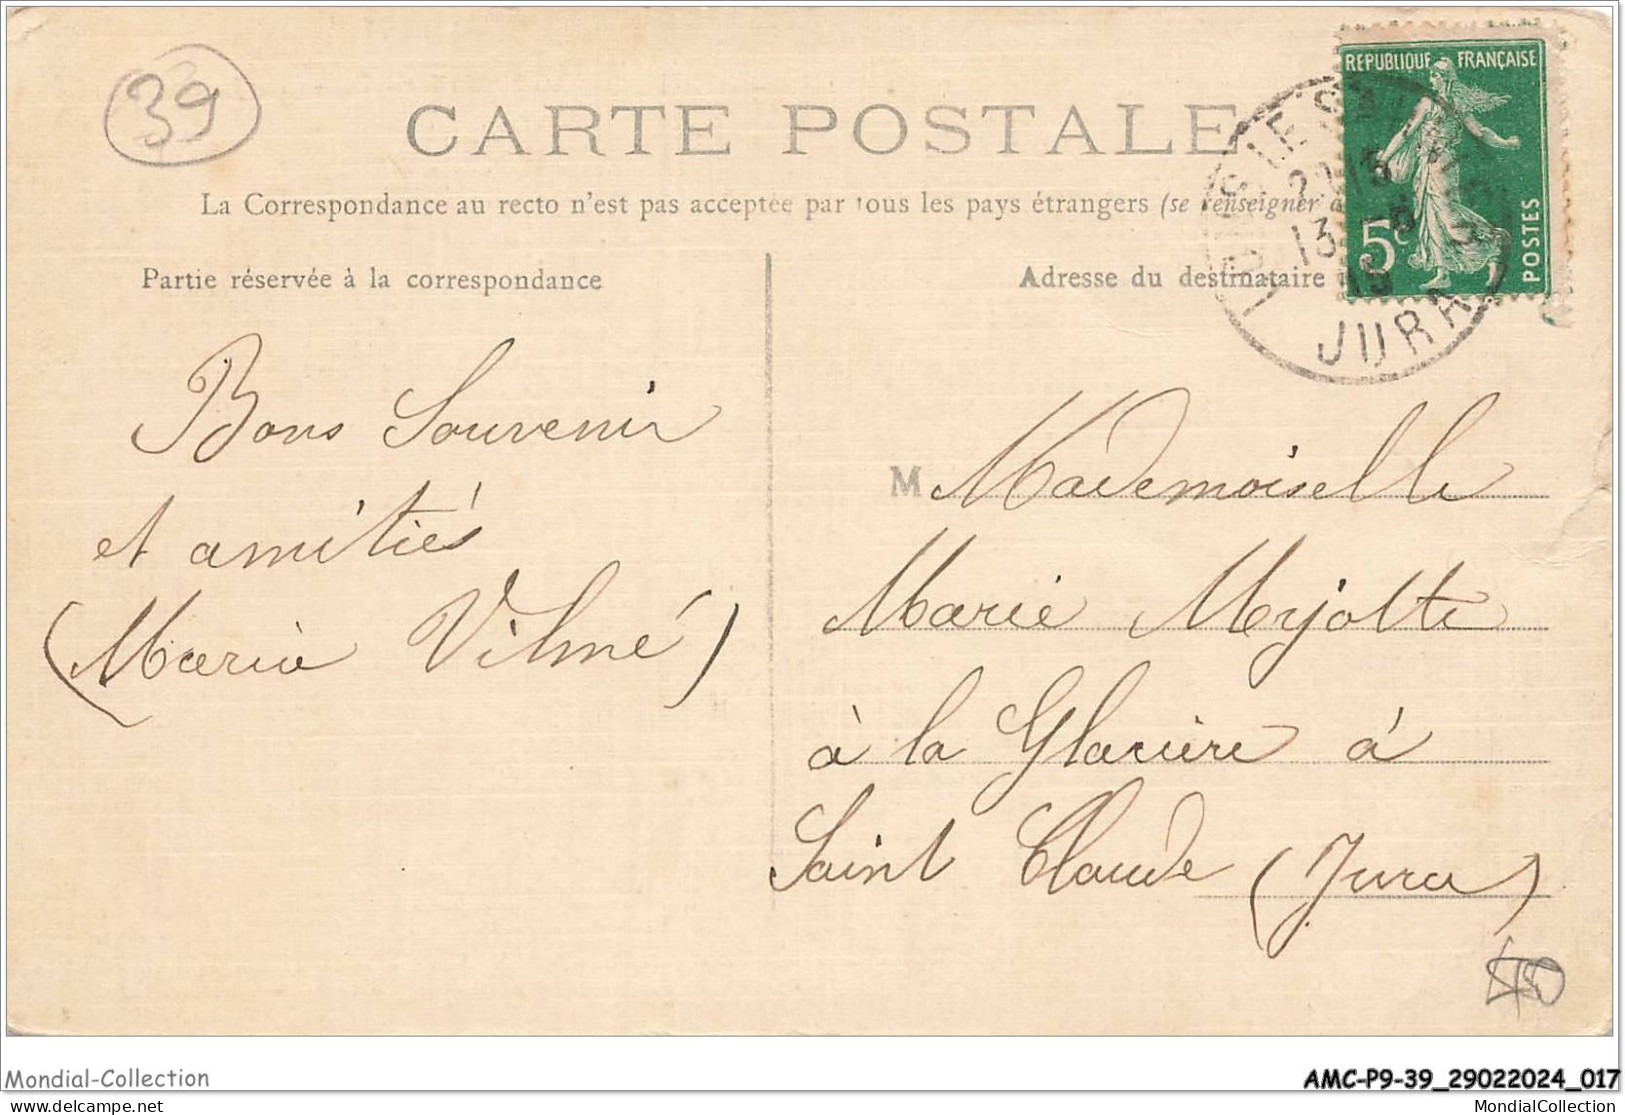 39
CARTE POSTALE
La Correspondance au recto n'est pas acceptée par tous les pays étrangers (se renseigner
Partie réservée à la correspondance
Adresse du destinataire
REPUBLIQUE FRANÇAISE
5c
POSTES
13
JURA
Bons Souvenir
et amitiés
(Maria Vilmé)
M Mademoiselle
Marie Mejotte
à la Glacière à
Saint Claude (Jura)
Mondial-Collection
AMC-P9-39_29022024_017
delcampe.net
MondialCollection